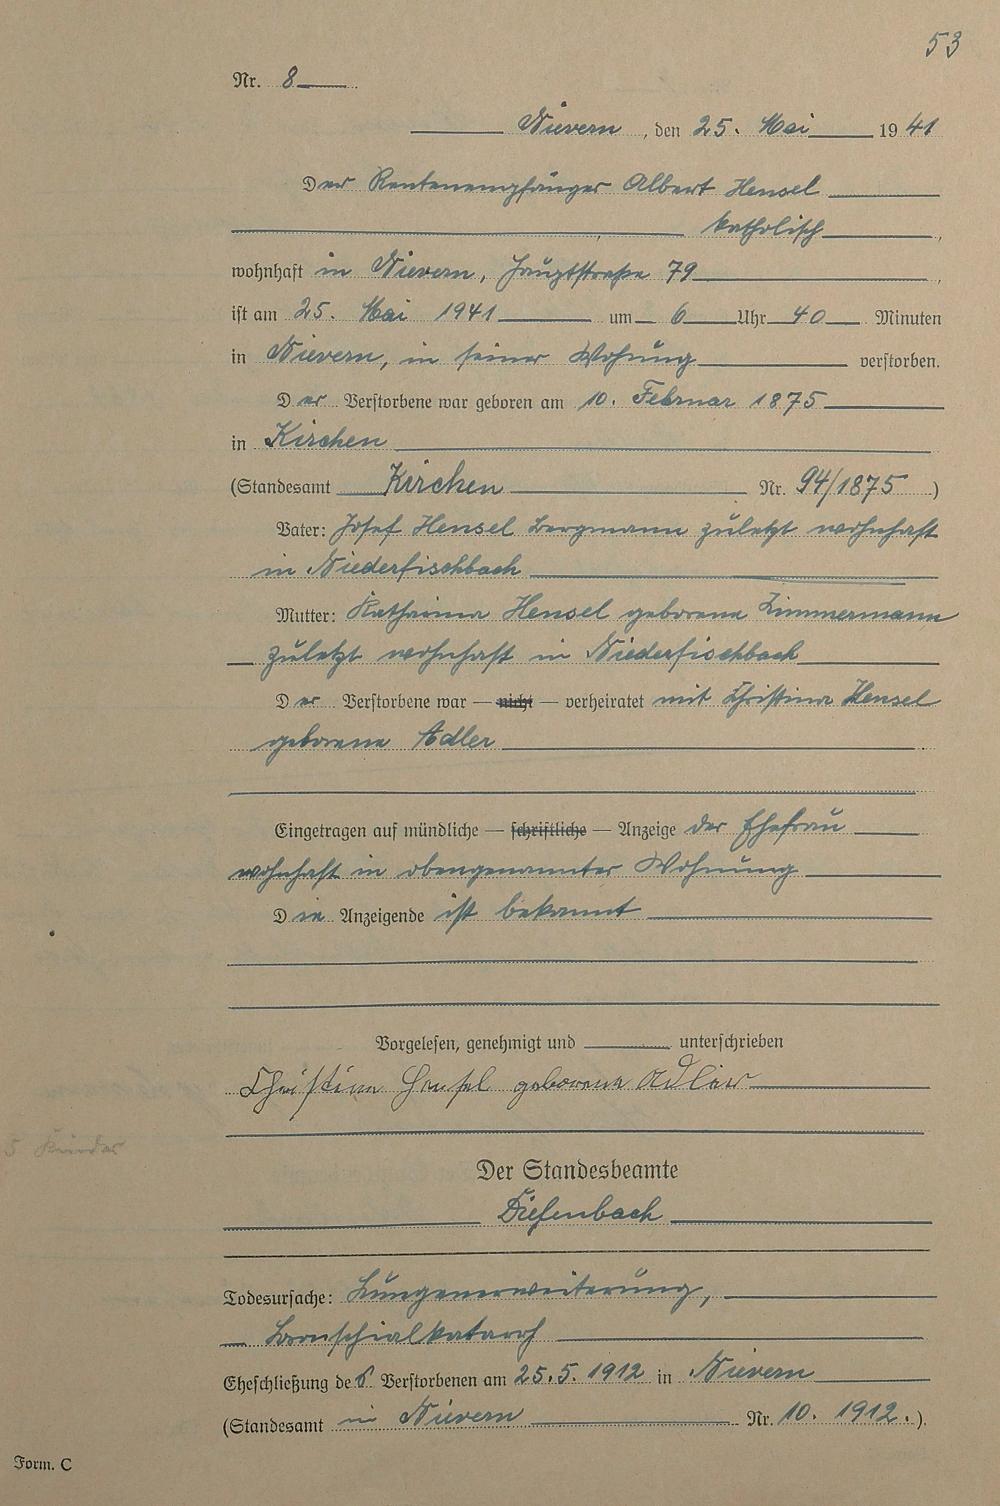 53
Nr. 8
Nievern, den 25. Mai 1941
Der Rentenempfänger Albert Hensel
katholisch,
wohnhaft in Nievern, Hauptstraße 79,
ist am 25. Mai 1941 um 6 Uhr 40 Minuten
in Nievern, in seiner Wohnung verstorben.
Der Verstorbene war geboren am 10. Februar 1875
in Kirchen
(Standesamt Kirchen Nr. 94/1875)
Vater: Josef Hensel Bergmann zuletzt wohnhaft
in Niederfischbach
Mutter: Katharina Hensel geborene Zimmermann
zuletzt wohnhaft in Niederfischbach
Der Verstorbene war — nicht — verheiratet mit Christina Hensel
geborene Adler
Eingetragen auf mündliche — schriftliche — Anzeige der Ehefrau
wohnhaft in obengenannter Wohnung
Die Anzeigende ist bekannt
Vorgelesen, genehmigt und unterschrieben
Christina Hensel geborene Adler
5 Kinder
Der Standesbeamte
Diefenbach
Todesursache: Lungenerweiterung,
Bronschialkatarrh
Eheschließung des Verstorbenen am 25.5.1912 in Nievern
(Standesamt in Nievern Nr. 10. 1912.).
Form. C